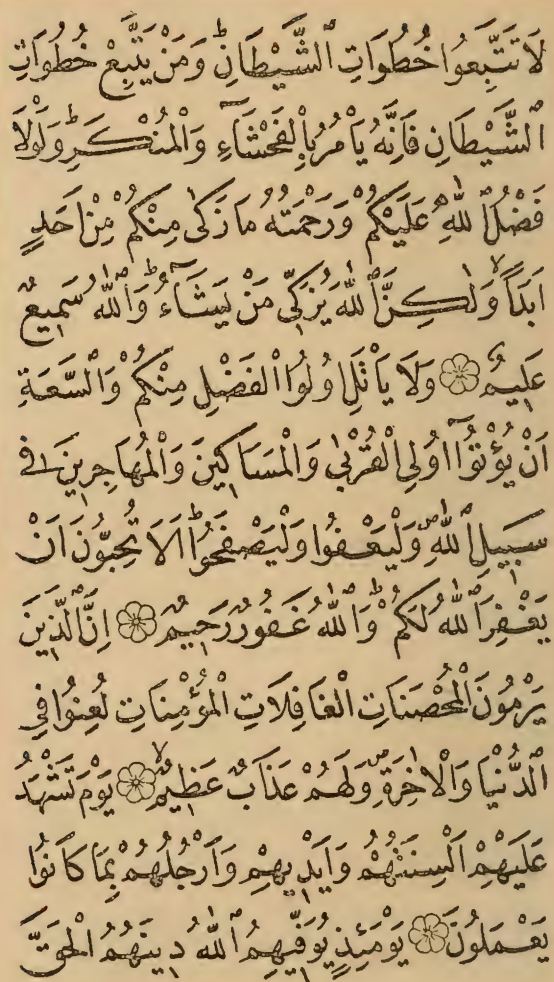 لَا تَتَّبِعُوا خُطُوَاتِ ٱلشَّيْطَانِۜ وَمَنْ يَتَّبِعْ خُطُوَاتِ
ٱلشَّيْطَانِ فَاِنَّهُ يَأْمُرُ بِالْفَحْشَآءِ وَالْمُنْكَرِۜ وَلَوْلَا
فَضْلُ ٱللّٰهِ عَلَيْكُمْ وَرَحْمَتُهُ مَا زَكٰى مِنْكُمْ مِنْ اَحَدٍ
اَبَدًا وَلٰكِنَّ ٱللّٰهَ يُزَكِّى مَنْ يَشَآءُۜ وَٱللّٰهُ سَمِيعٌ
عَلِيمٌ ۝ وَلَا يَأْتَلِ اُو۬لُوا الْفَضْلِ مِنْكُمْ وَالسَّعَةِ
اَنْ يُؤْتُوٓا اُو۬لِى الْقُرْبٰى وَالْمَسَاكِينَ وَالْمُهَاجِرِينَ فِى
سَبِيلِ ٱللّٰهِ وَلْيَعْفُوا وَلْيَصْفَحُواۜ اَلَا تُحِبُّونَ اَنْ
يَغْفِرَ ٱللّٰهُ لَكُمْۜ وَٱللّٰهُ غَفُورٌ رَحِيمٌ ۝ اِنَّ الَّذِينَ
يَرْمُونَ الْمُحْصَنَاتِ الْغَافِلَاتِ الْمُؤْمِنَاتِ لُعِنُوا فِى
الدُّنْيَا وَالْاٰخِرَةِ وَلَهُمْ عَذَابٌ عَظِيمٌ ۝ يَوْمَ تَشْهَدُ
عَلَيْهِمْ اَلْسِنَتُهُمْ وَاَيْدِيهِمْ وَاَرْجُلُهُمْ بِمَا كَانُوا
يَعْمَلُونَ ۝ يَوْمَئِذٍ يُوَفِّيهِمُ ٱللّٰهُ دِينَهُمُ الْحَقَّ